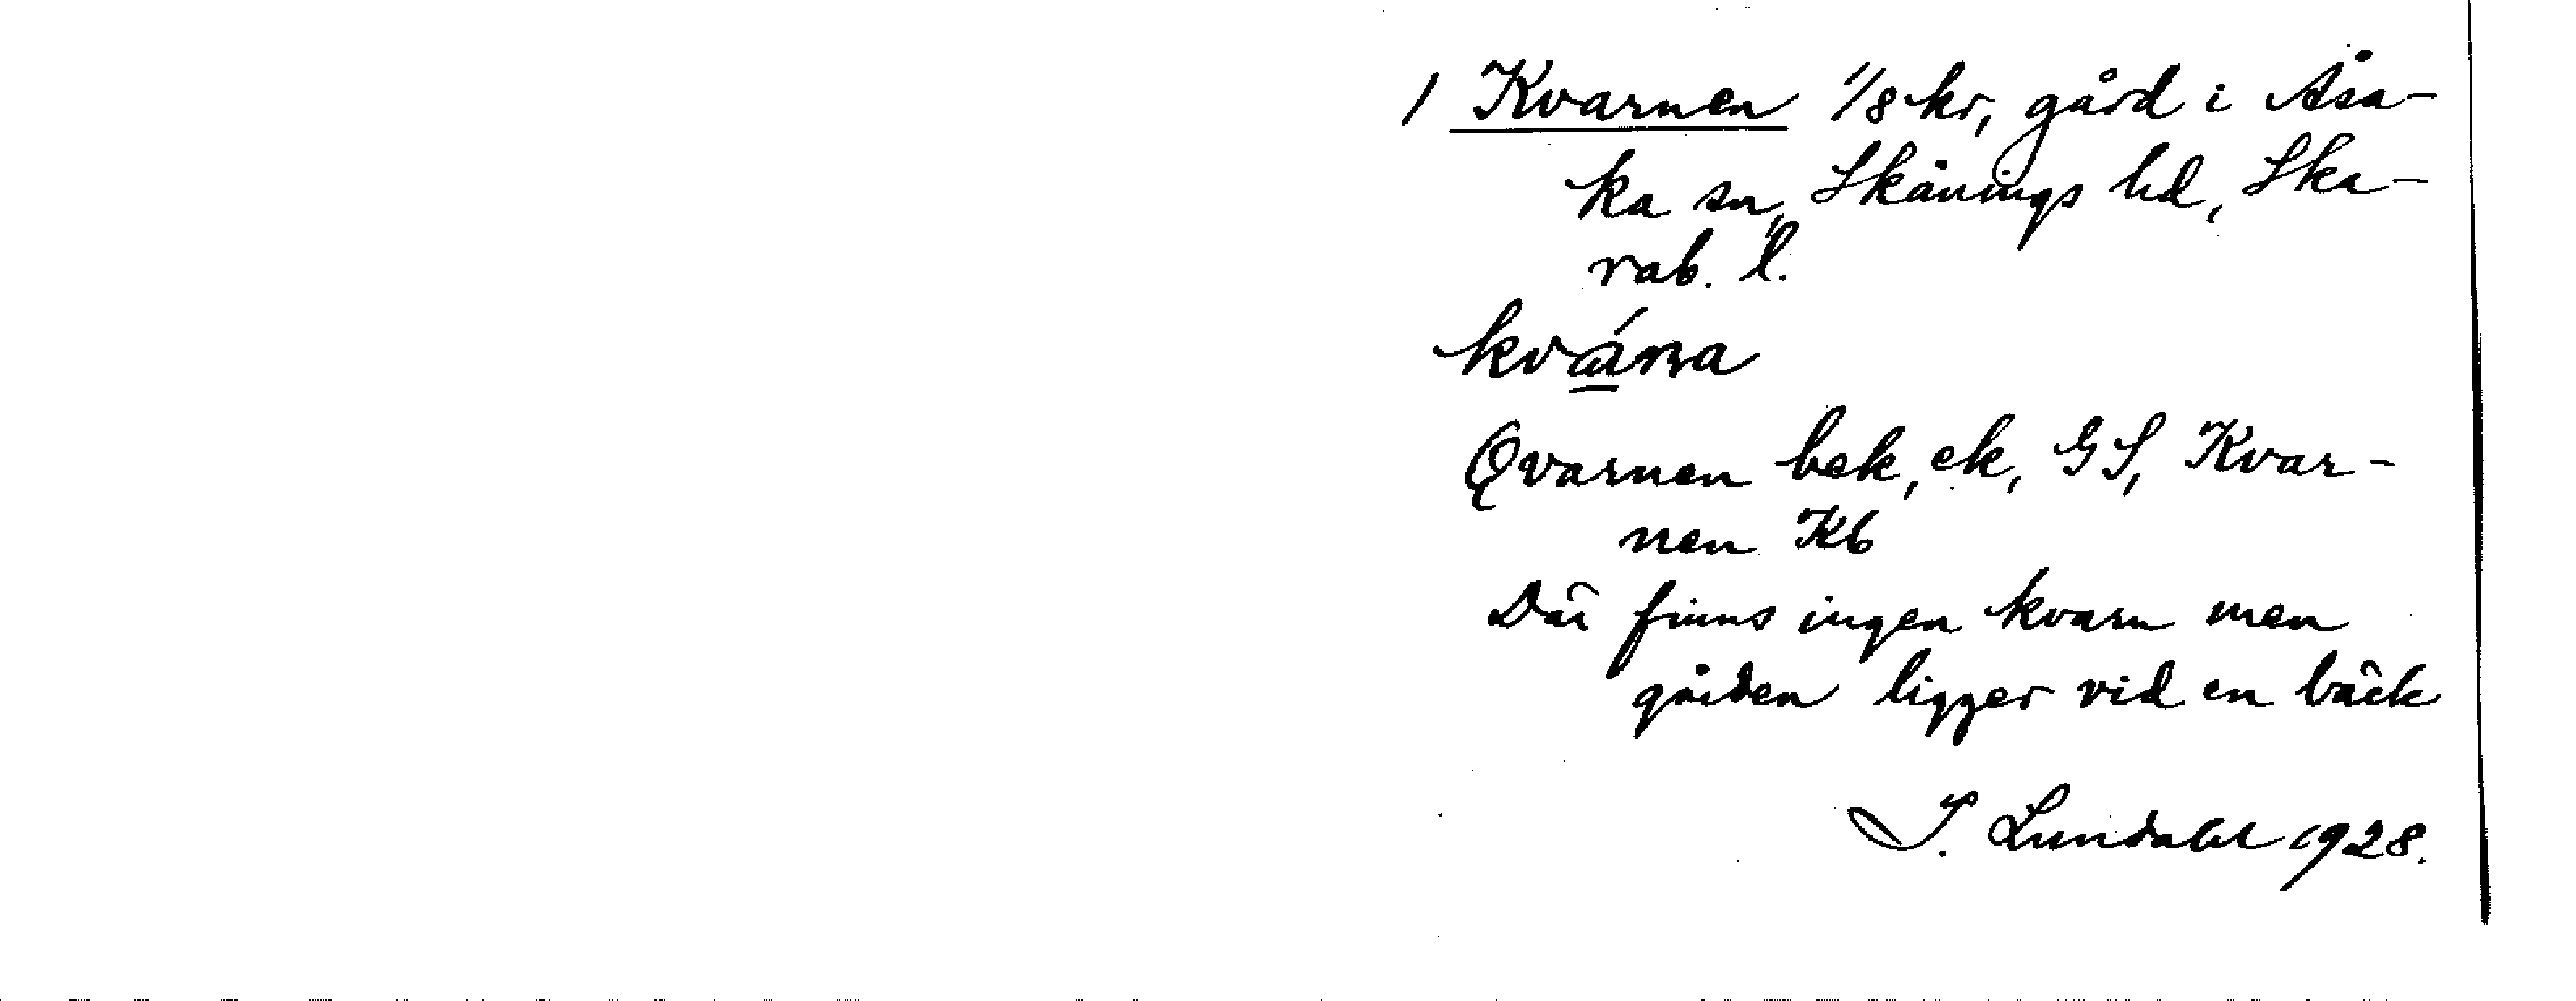 1 Kvarnen 1/8 kr, gård i Åsa-
ka sn, Skånings hd, Ska-
rab. l.
kvárna
Qvarnen bek, ek, GS, Kvar-
nen Kb
Där finns ingen kvarn men
gården ligger vid en bäck
I. Lundahl 1928.